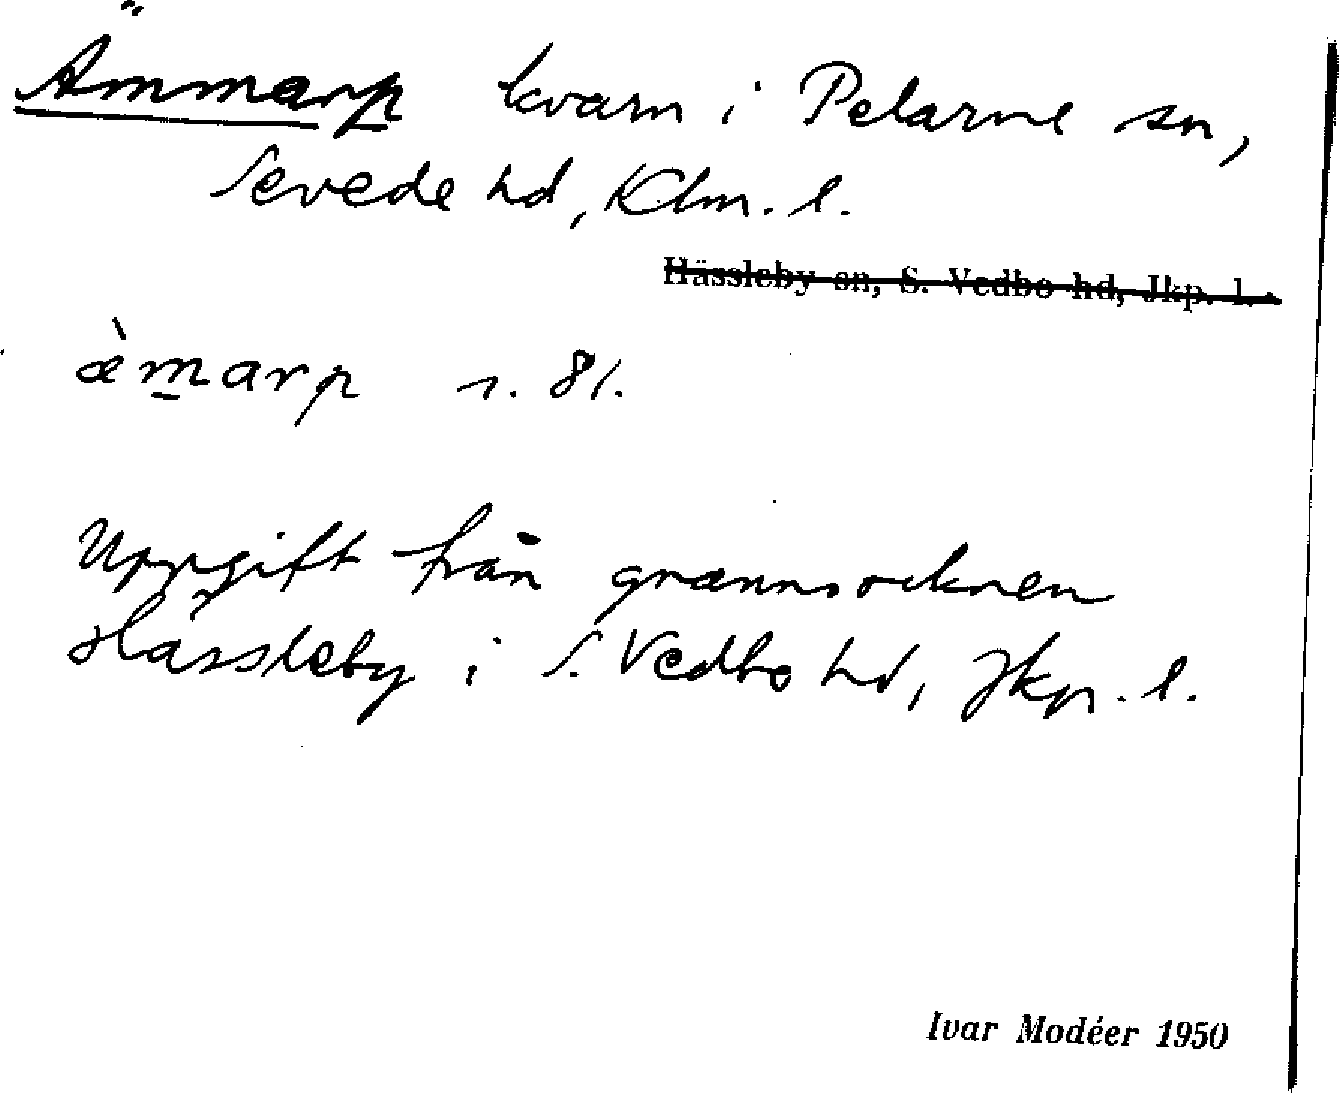 Ämmarp kvarn i Pelarne sn,
Sevede hd, Klm. l.
Hässleby sn, S. Vedbo hd, Jkp. l.
æ̀marp s. 81.
Uppgift från grannsocknen
Hässleby i S. Vedbo hd, Jkp. l.
Ivar Modéer 1950